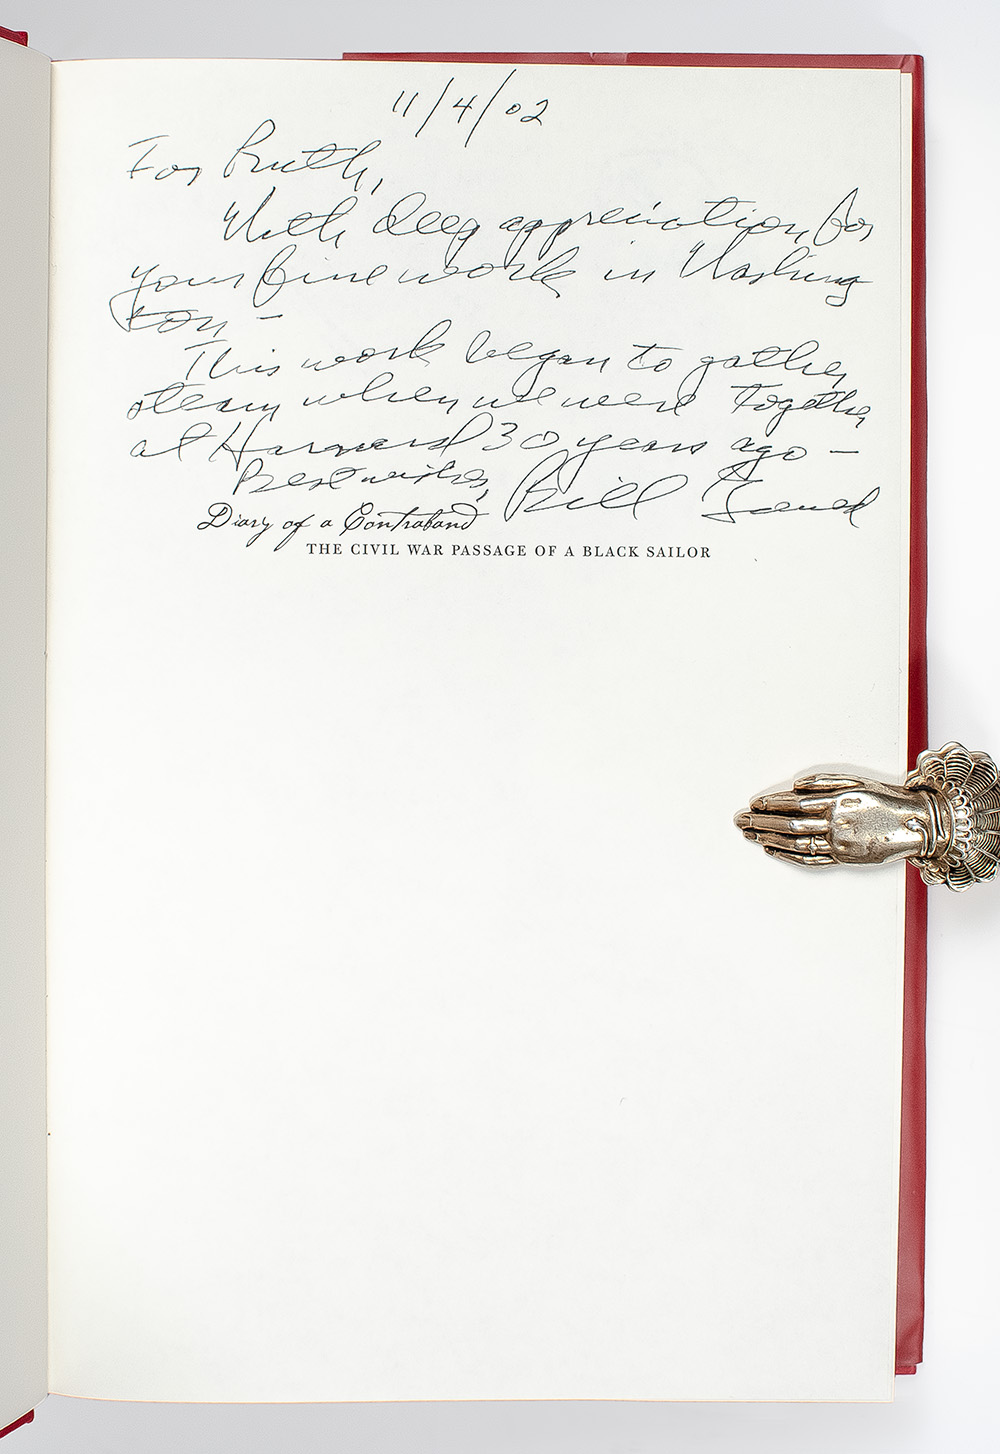 11/4/02
For Ruth,
With deep appreciation for
your fine work in Washing
ton -
This work began to gather
steam when we were together
at Harvard 30 years ago -
Best wishes, Bill Gould
Diary of a Contraband
THE CIVIL WAR PASSAGE OF A BLACK SAILOR